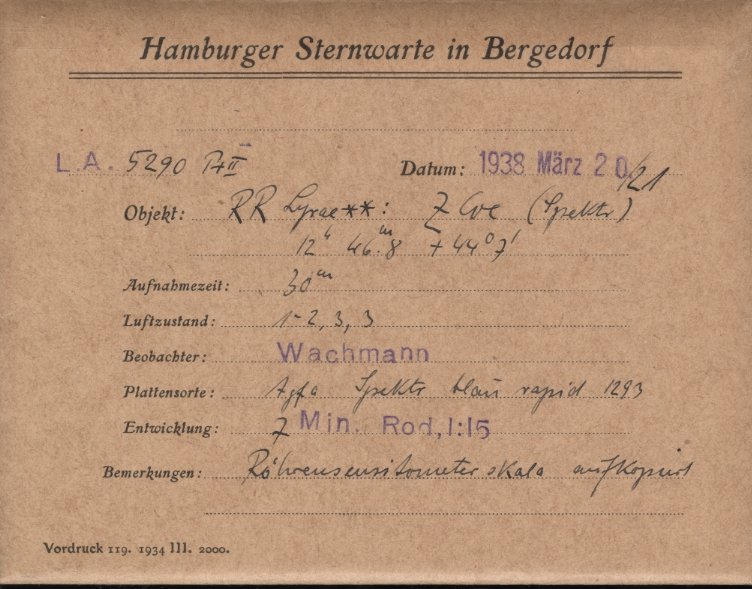 Hamburger Sternwarte in Bergedorf
L.A. 5290 Datum: 1938 März 20/21
Objekt: RR Lyrae**: Z CVe (Spektr)
12h 46m.8 +44° 7'
Aufnahmezeit: 30m
Luftzustand: 1-2, 3, 3
Beobachter: Wachmann
Plattensorte: Agfa Spektr blau rapid 1293
Entwicklung: 7 Min. Rod, 1:15
Bemerkungen: Röhrensensitometerskala aufkopiert
Vordruck 119. 1934 III. 2000.